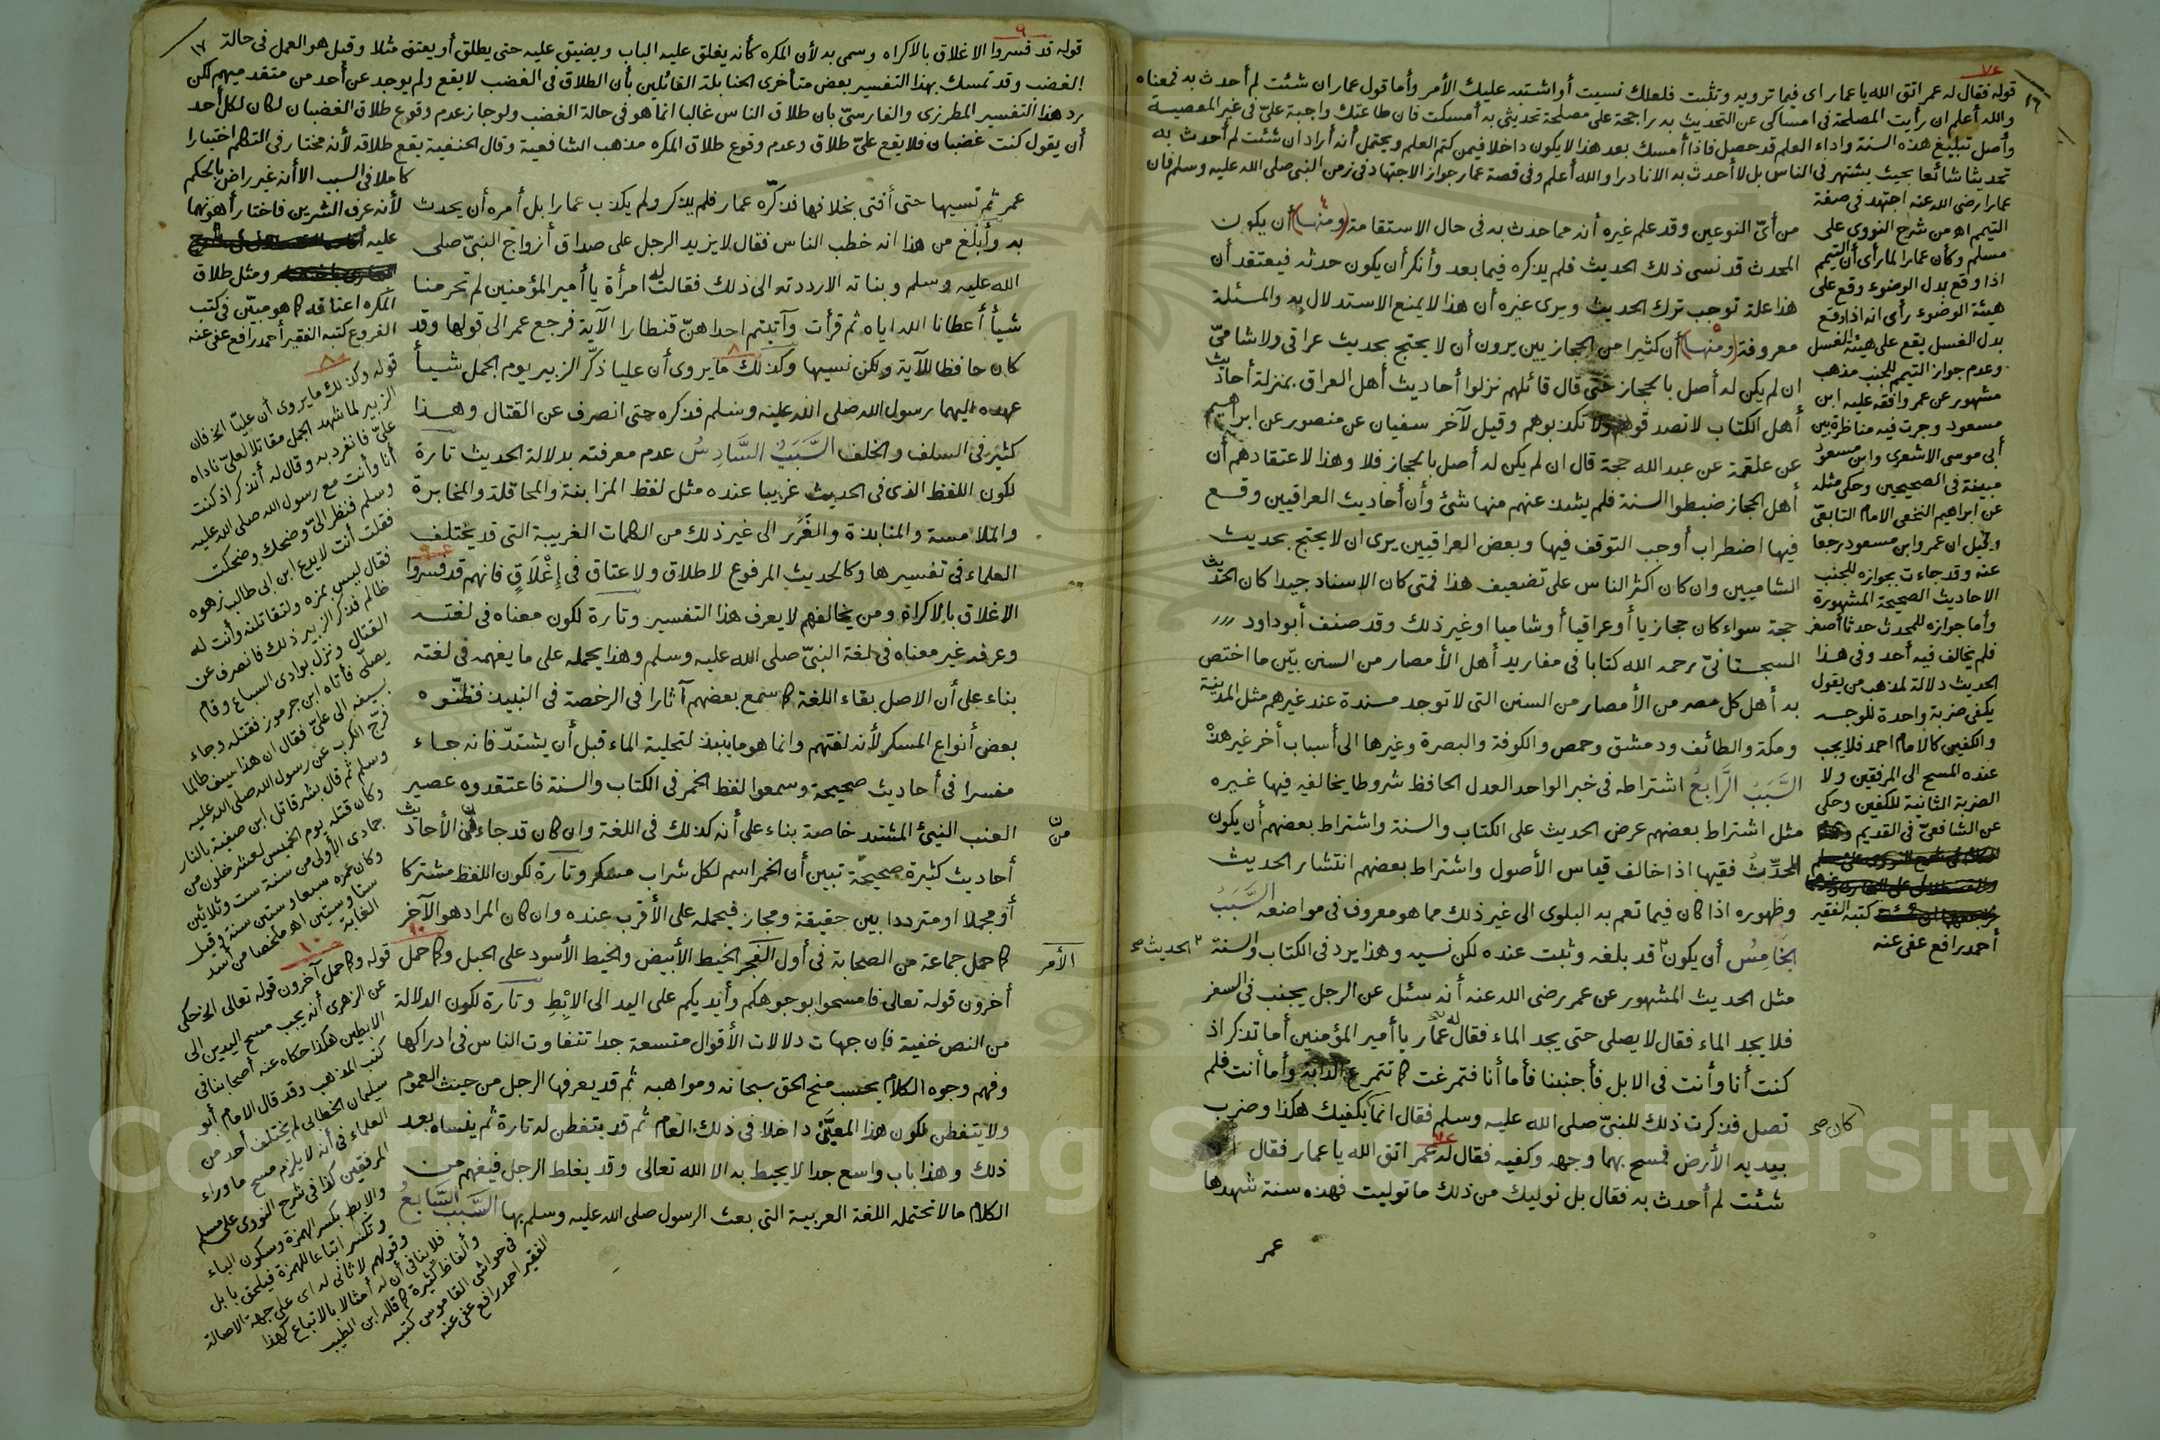 ١٦
٧ع
قوله فقال له عمر اتق الله يا عمار اى فيما ترويه وتثبت فلعلك نسيت أو اشتبه عليك الأمر وأما قول عمار ان شئت لم أحدث به فمعناه
والله أعلم ان رأيت المصلحة فى امساكى عن التحديث به راجحة على مصلحة تحديثى به أمسكت فان طاعتك واجبة علىّ فى غير المعصية
وأصل تبليغ هذه السنة واداء العلم قد حصل فاذا أمسك بعد هذا لا يكون داخلا فيمن كتم العلم ويحتمل أنه أراد ان شئت لم أحدث به
تحديثا شائعا بحيث يشتهر فى الناس بل لا أحدث به الا نادرا والله أعلم وفى قصة عمار جواز الاجتهاد فى زمن النبى صلى الله عليه وسلم فان
عمارا رضى الله عنه اجتهد فى صفة
التيمم اه من شرح النووى على
مسلم وكأن عمارا لما رأى أن التيمم
اذا وقع بدل الوضوء وقع على
هيئة الوضوء رأى انه اذا وقع
بدل الغسل يقع على هيئة الغسل
وعدم جواز التيمم للجنب مذهب
مشهور عن عمر وافقه عليه ابن
مسعود وجرت فيه مناظرة بين
أبى موسى الاشعرى وابن مسعود
مبينة فى الصحيحين وحكى مثله
عن ابراهيم النخعى الامام التابعىّ
وقيل ان عمر وابن مسعود رجعا
عنه وقد جاءت بجوازه للجنب
الاحاديث الصحيحة المشهورة
وأما جوازه للمحدث حدثا أصغر
فلم يخالف فيه أحد وفى هذا
الحديث دلالة لمذهب من يقول
يكفى ضربة واحدة للوجه
والكفين كالامام احمد فلا يجب
عنده المسح الى المرفقين ولا
الضربة الثانية للكفين وحكى
عن الشافعىّ فى القديم
كتبه الفقير
أحمد رافع عفى عنه
من أىّ النوعين وقد علم غيره أنه مما حدث به فى حال الاستقامة (ومنها) أن يكون
المحدث قد نسى ذلك الحديث فلم يذكره فيما بعد وأنكر أن يكون حدثه فيعتقد أن
هذا علة توجب ترك الحديث ويرى غيره أن هذا لا يمنع الاستدلال به والمسئلة
معروفة (ومنها) أن كثيرا من الحجازيين يرون أن لا يحتج بحديث عراقى ولا شامىّ
ان لم يكن له أصل بالحجاز حتى قال قائلهم نزلوا أحاديث أهل العراق بمنزلة أحاديث
أهل الكتاب لا تصدقوهم ولا تكذبوهم وقيل لآخر سفيان عن منصور عن ابراهيم
عن علقمة عن عبد الله حجة قال ان لم يكن له أصل بالحجاز فلا وهذا لاعتقادهم أن
أهل الحجاز ضبطوا السنة فلم يشذ عنهم منها شئ وأن أحاديث العراقيين وقع
فيها اضطراب أوجب التوقف فيها وبعض العراقيين يرى ان لا يحتج بحديث
الشاميين وان كان اكثر الناس على تضعيف هذا فمتى كان الإسناد جيدا كان الحديث
حجة سواء كان حجازيا أو عراقيا أو شاميا اوغير ذلك وقد صنف أبو داود
السجستانىّ رحمه الله كتابا فى مفاريد أهل الأمصار من السنن يبّين ما اختص
به أهل كل مصر من الأمصار من السنن التى لا توجد مسندة عند غيرهم مثل المدينة
ومكة والطائف ودمشق وحمص والكوفة والبصرة وغيرها الى أسباب أخر غير هذه
السَّبَبُ الرَّابعُ اشتراطه فى خبر الواحد العدل الحافظ شروطا يخالفه فيها غيره
مثل اشتراط بعضهم عرض الحديث على الكتاب والسنة واشتراط بعضهم أن يكون
المحدِّثُ فقيها اذا خالف قياس الأصول واشتراط بعضهم انتشار الحديث
وظهوره اذا كان فيما تعم به البلوى الى غير ذلك مما هو معروف فى مواضعه السَّبَبُ
الخَامِسُ أن يكون قد بلغه وثبت عنده لكن نسيه وهذا يرد فى الكتاب والسنة
الحديث صح
مثل الحديث المشهور عن عمر رضى الله عنه أنه سئل عن الرجل يجنب فى السفر
فلا يجد الماء فقال لا يصلى حتى يجد الماء فقال له عمار يا أمير المؤمنين أما تذكر اذ
كنت أنا وأنت فى الابل فأجنبنا فأما أنا فتمرغت كما تتمرغ الدابة وأما أنت فلم
تصل فذكرت ذلك للنبىّ صلى الله عليه وسلم فقال انما يكفيك هكذا وضرب
كان صح
بيديه الأرض فمسح بهما وجهه وكفيه فقال له عمر اتق الله يا عمار فقال ان
شئت لم أحدث به فقال بل نوليك من ذلك ما توليت فهذه سنة شهدها
عمر
١٧
٩
قوله قد فسروا الاغلاق بالاكراه وسمى به لأن المكره كأنه يغلق عليه الباب ويضيق عليه حتى يطلق أو يعتق مثلا وقيل هو العمل فى حالة
الغضب وقد تمسك بهذا التفسير بعض متأخرى الحنابلة القائلين بأن الطلاق فى الغضب لا يقع ولم يوجد عن أحد من متقدميهم لكن
رد هذا التفسير المطرزى والفارسىّ بان طلاق الناس غالبا انما هو فى حالة الغضب ولو جاز عدم وقوع طلاق الغضبان لكان لكل أحد
أن يقول كنت غضبان فلا يقع علىّ طلاق وعدم وقوع طلاق المكره مذهب الشافعية وقال الحنفية يقع طلاقه لأنه مختار فى التكلم اختيارا
كاملا فى السبب الا أنه غير راض بالحكم
لأنه عرف الشرين فاختار أهونهما
عليه
ومثل طلاق
المكره اعتاقه كما هو مبيّن فى كتب
الفروع كتبه الفقير أحمد رافع عفى عنه
عمر ثم نسيها حتى أفتى بخلافها فذكّره عمار فلم يذكر ولم يكذب عمارا بل أمره أن يحدث
به وأبلغ من هذا انه خطب الناس فقال لا يزيد الرجل على صداق أزواج النبىّ صلى
الله عليه وسلم وبناته الا رددته الى ذلك فقالت له امرأة يا أمير المؤمنين لم تحرمنا
شيأ أعطانا الله اياه ثم قرأت وآتيتم احداهنّ قنطارا الآية فرجع عمر الى قولها وقد
كان حافظا للآية ولكن نسيها وكذلك ما يروى أن عليا ذكّر الزبير يوم الجمل شيأ
عهده اليهما رسول الله صلى الله عليه وسلم فذكره حتى انصرف عن القتال وهذا
كثير فى السلف والخلف السَّبَبُ السَّادِسُ عدم معرفته بدلالة الحديث تارة
لكون اللفظ الذى فى الحديث غريبا عنده مثل لفظ المزابنة والمحاقلة والمخابرة
والملامسة والمنابذة والغَرَر الى غير ذلك من الكلمات الغريبة التى قد يختلف
العلماء فى تفسيرها وكالحديث المرفوع لا طلاق ولا عتاق فى إغْلَاقٍ فانهم قد فسروا
الاغلاق بالاكراه ومن يخالفهم لا يعرف هذا التفسير وتارة لكون معناه فى لغته
وعرفه غير معناه فى لغة النبىّ صلى الله عليه وسلم وهذا يحمله على ما يفهمه فى لغته
بناء على أن الاصل بقاء اللغة كما سمع بعضهم آثارا فى الرخصة فى النبيذ فظنّوه
بعض أنواع المسكر لأنه لغتهم وانما هو ما ينبذ لتحلية الماء قبل أن يشتدّ فانه جاء
مفسرا فى أحاديث صحيحة وسمعوا لفظ الخمر فى الكتاب والسنة فاعتقدوه عصير
العنب النيئ المشتد خاصة بناء على أنه كذلك فى اللغة وان كان قد جاء من الأحاديث
منّ
أحاديث كثيرة صحيحة تبين أن الخمر اسم لكل شراب مسكر وتارة لكون اللفظ مشتركا
أو مجملا او مترددا بين حقيقة ومجاز فيحمله على الأقرب عنده وان كان المراد هو الآخر
كما حمل جماعة من الصحابة فى أول الفجر الخيط الأبيض والخيط الأسود على الحبل وكما حمل
الأمر
أخرون قوله تعالى فامسحوا بوجوهكم وأيديكم على اليد الى الابْطِ وتارة لكون الدلالة
من النص خفية فإن جهات دلالات الأقوال متسعة جدا تتفاوت الناس فى ادراكها
وفهم وجوه الكلام بحسب منح الحق سبحانه ومواهبه ثم قد يعرفها الرجل من حيث العموم
ولا يتفطن لكون هذا المعنَى داخلا فى ذلك العام ثم قد يتفطن له تارة ثم ينساه بعد
ذلك وهذا باب واسع جدا لا يحيط به الا الله تعالى وقد يغلط الرجل فيفهم من
الكلام ما لا تحتمله اللغة العربية التى بعث الرسول صلى الله عليه وسلم بها السَّبَبُ السَّابِعُ
٨ع
قوله وكذلك ما يروى أن عليّا الخ فان
الزبير لما شهد الجمل مقاتلا لعلىّ ناداه
علىّ فانفرد به وقال له أتذكر اذ كنت
أنا وأنت مع رسول الله صلى الله عليه
وسلم فنظر الىّ وضحك وضحكت
فقلت أنت لا يدع ابن ابى طالب زهوه
فقال ليس بمزه ولتقاتلنه وأنت له
ظالم فذكر الزبير ذلك فانصرف عن
القتال ونزل بوادى السباع وقام
يصلى فأتاه ابن جرموز فقتله وجاء
بسيفه الى علىّ فقال ان هذا سيف طالما
فرّج الكرب عن رسول الله صلى الله عليه
وسلم ثم قال بشر قاتل ابن صفية بالنار
وكان قتله يوم الخميس لعشر خلون من
جمادى الأولى من سنة ست وثلاثين
وكان عمره سبعا وستين سنة وقيل
ستا وستين اه ملخصا من أسد
الغابة
١٠
قوله وكما حمل آخرون قوله تعالى الخ حكى
عن الزهرى أنه يجب مسح اليدين الى
الابطين هكذا حكاه عنه أصحابنا فى
كتب المذهب وقد قال الامام أبو
سليمان الخطابى لم يختلف أحد من
العلماء فى أنه لا يلزم مسح ما وراء
المرفقين كذا فى شرح النووى على مسلم
والابط بكسر الهمزة وسكون الباء
وتكسر اتباعا للهمزة فيلحق بابل
وقولهم لا ثانى له اى على جهة الاصالة
فلا ينافى أن له أمثالا بالاتباع كهذا
وألفاظ كثيرة كما قاله ابن الطيب
فى حواشى القاموس كتبه
الفقير احمد رافع عفى عنه
Copyright © King Saud University